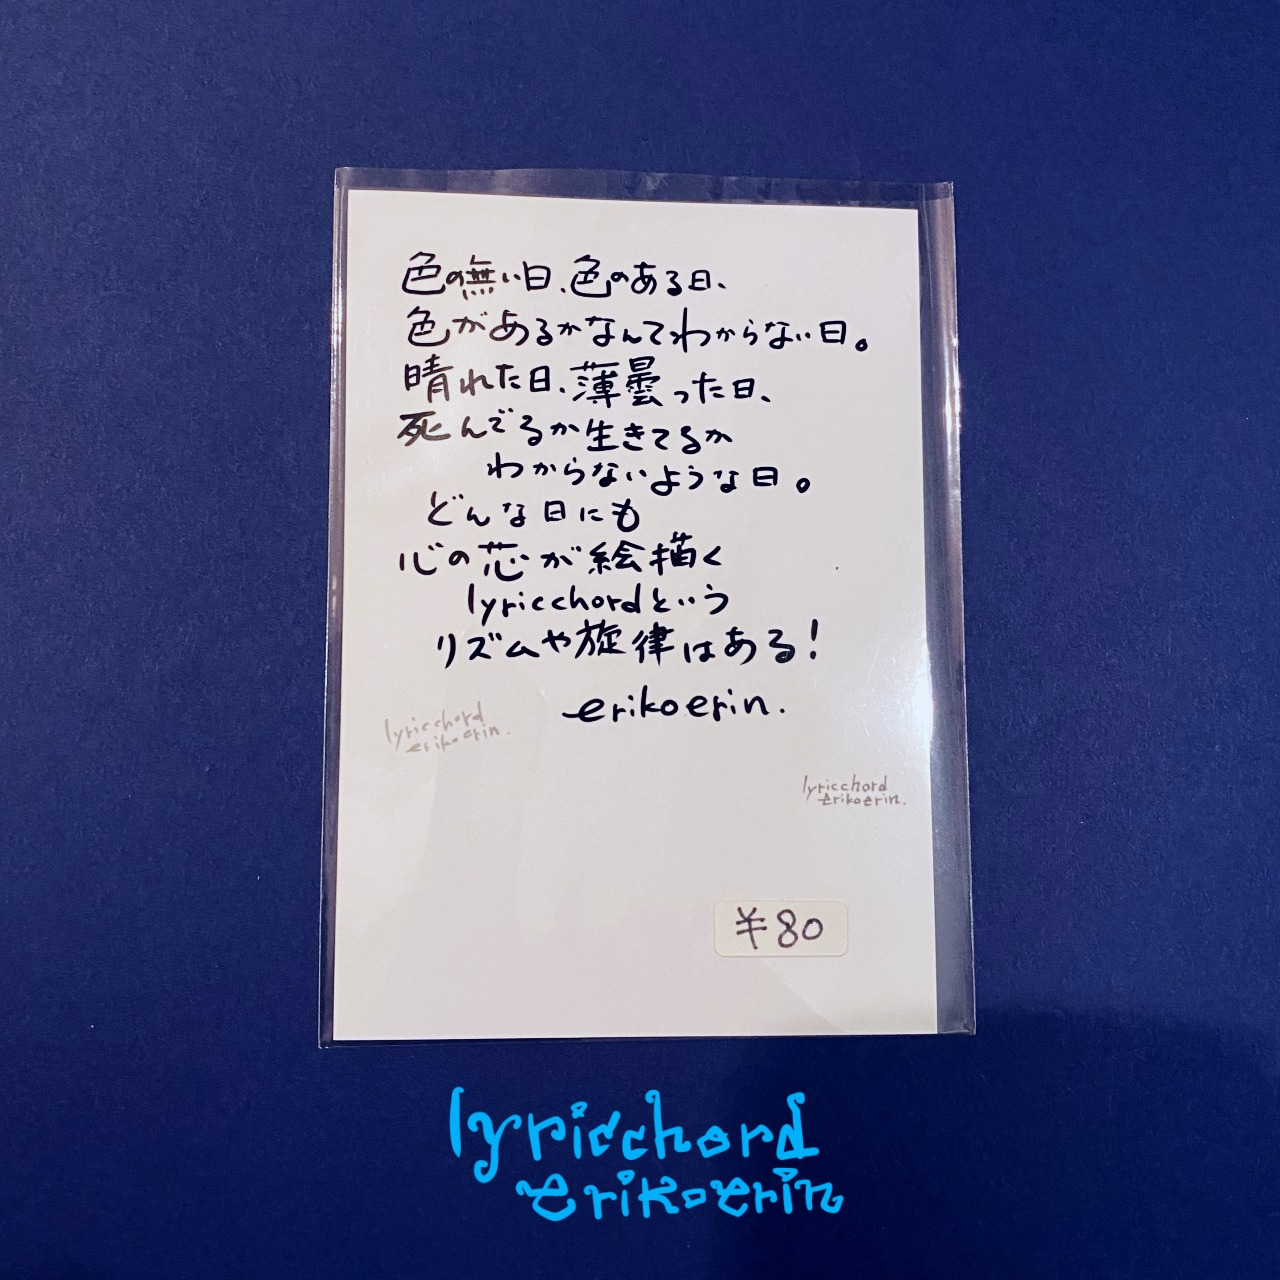 色の無い日、色のある日、
色があるかなんてわからない日。
晴れた日、薄曇った日、
死んでるか生きてるか
わからないような日。
どんな日にも
心の芯が絵描く
lyricchordという
リズムや旋律はある!
erikoerin.
lyricchord
erikoerin.
lyricchord
erikoerin.
¥80
lyricchord
erikoerin